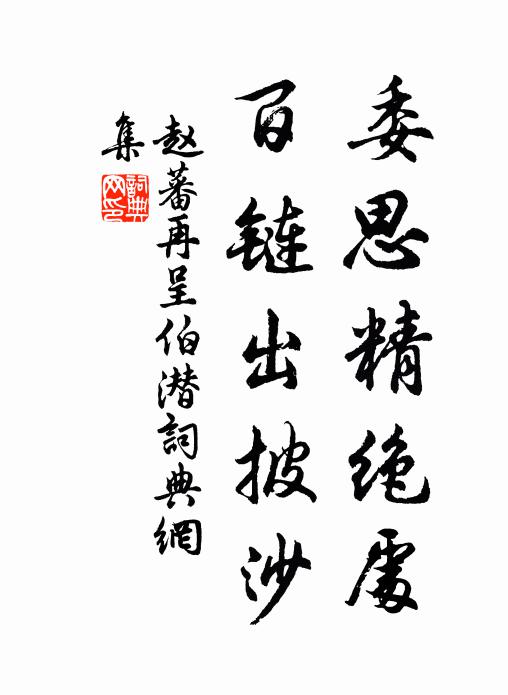 委思精绝處
百链出披沙
赵蕃再呈伯潜詞典網
集
詞典
网印